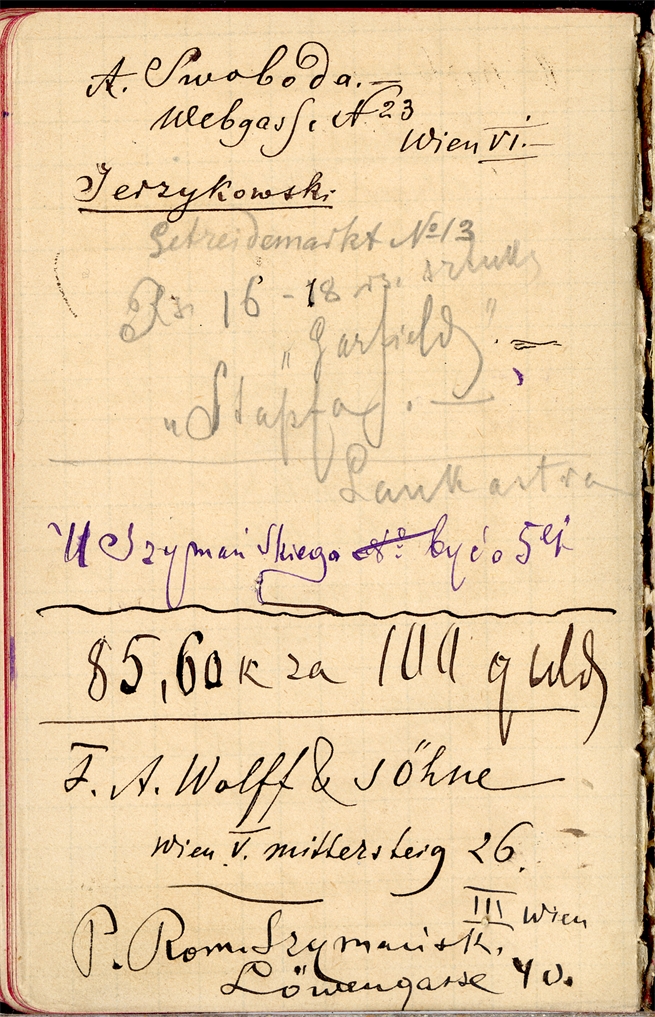 A. Swoboda.—
Webgasse N 23
Wien VI.—
Jerzykowski
Getreidemarkt No 13
Rs. 16 - 18 sztuka
"Garfield".
"Stapfa".—
U Szymańskiego być o 5ej
85,60 k za 100 guld
F. A. Wolff & söhne
Wien V. mittersteig 26.
III Wien
P. Rom. Szymańsk.
Löwengasse 40.